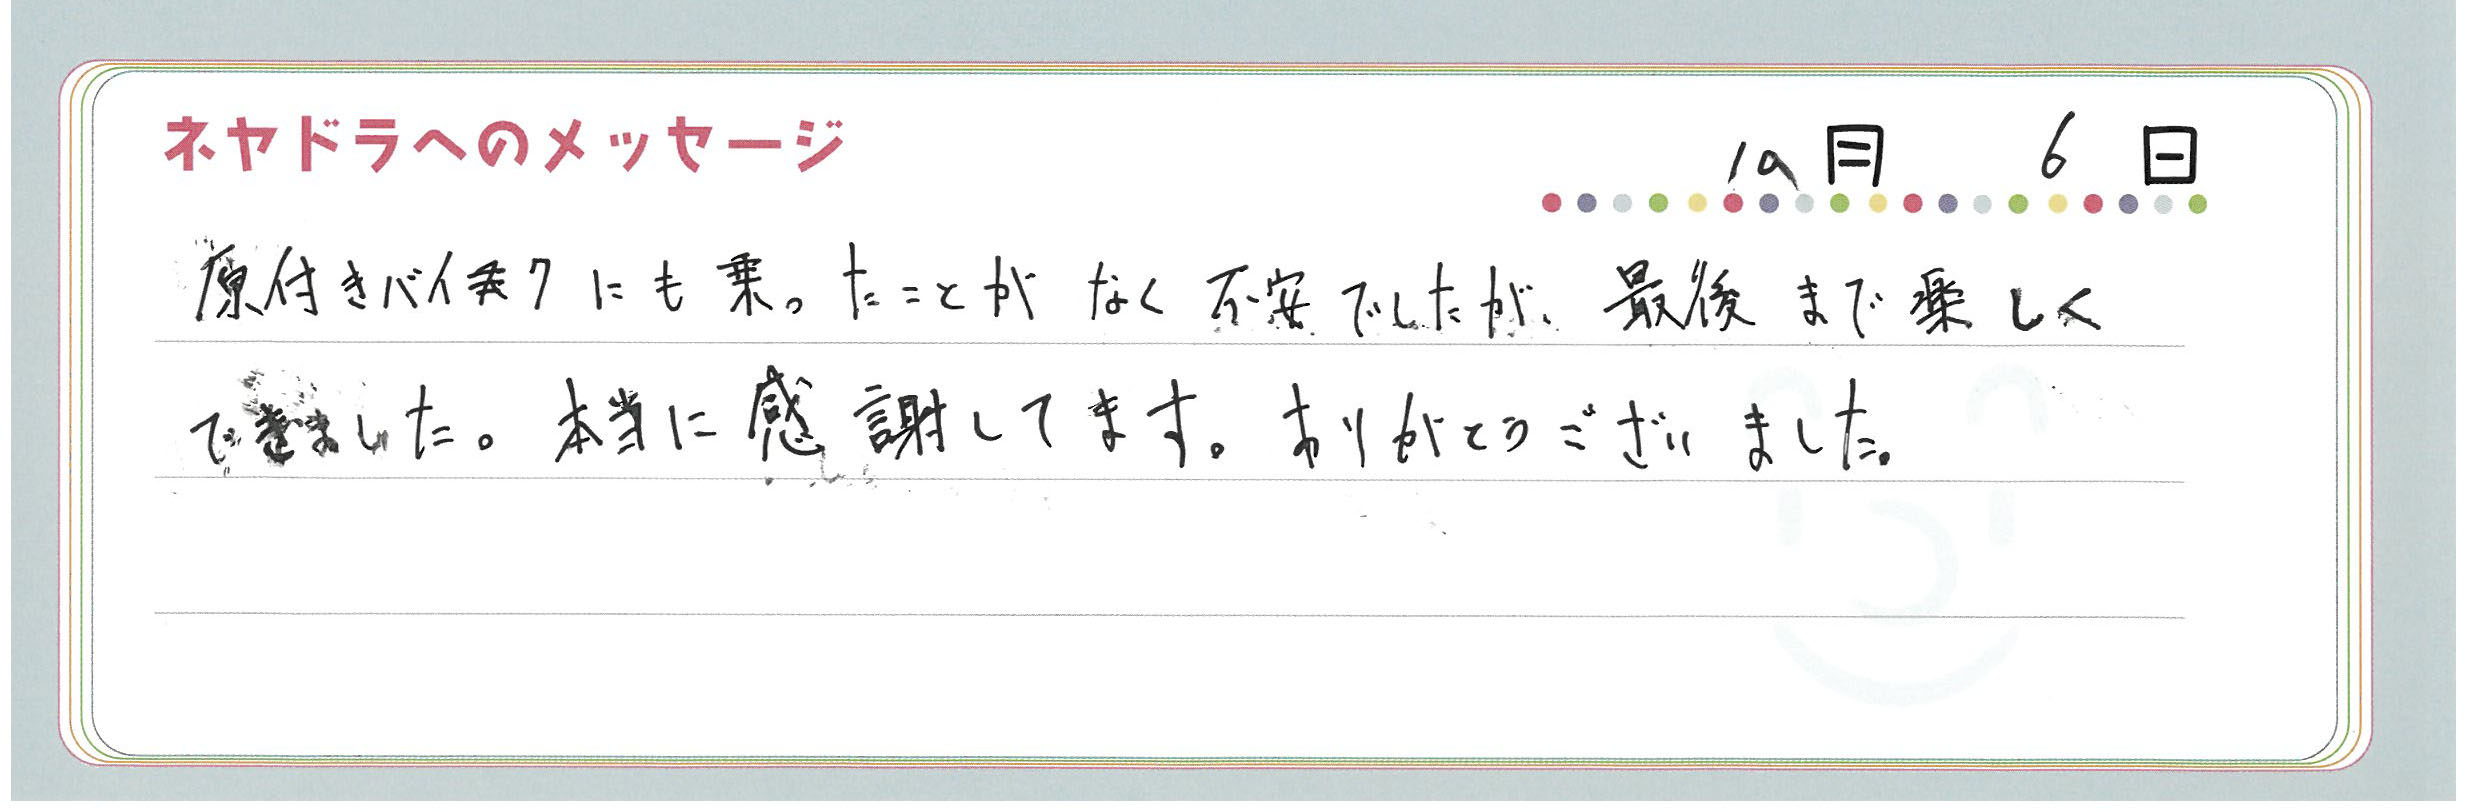 ネヤドラへのメッセージ
10月 6日
原付きバイクにも乗ったことがなく不安でしたが、最後まで楽しく
できました。本当に感謝してます。ありがとうございました。